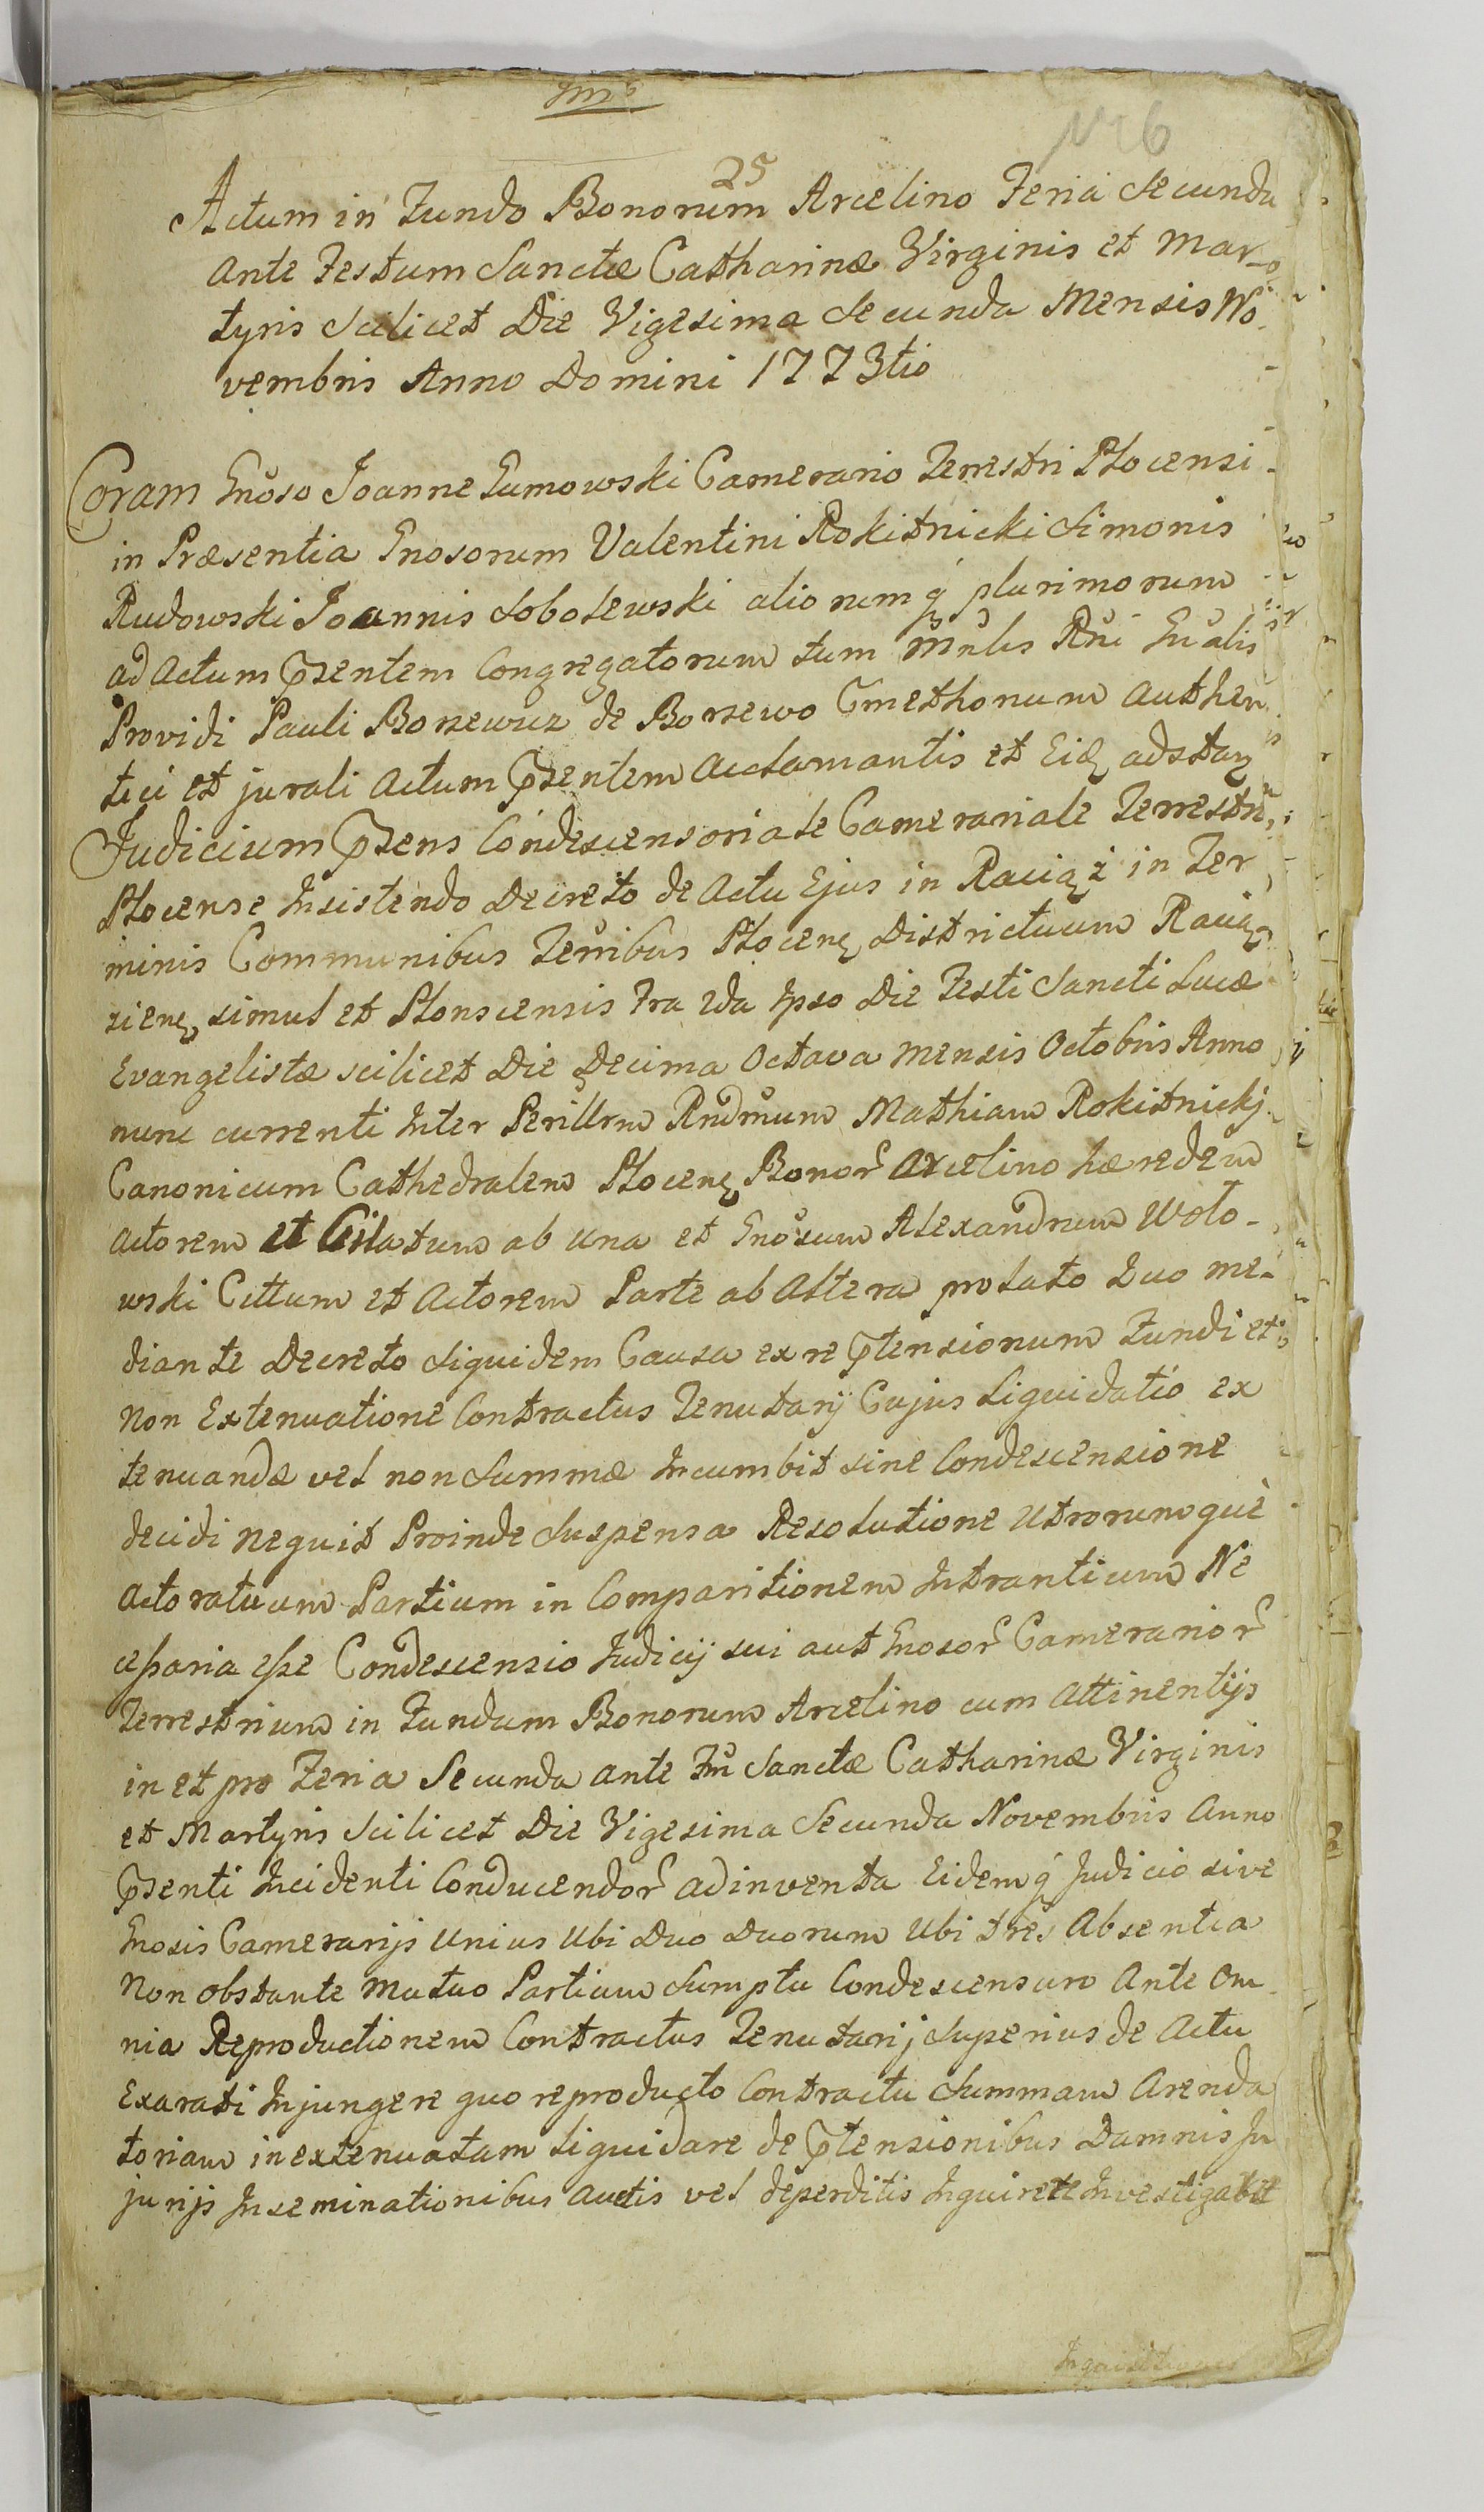 Im̃o
Nr 6
25
Actum in Fundo Bonorum Arcelino Feria Secunda
ante Festum Sanctæ Catharinæ Virginis et Mar-
tyris Scilicet Die Vigesima Secunda Mensis No-
vembris Anno Domini 1773tio
Coram Gnoso Joanne Gumowski Camerario Terrestri Plocensi
in Præsentia Gnosorum Valentini Rokitnicki Simonis
Rudowski Joannis Sobolewski aliorumq́ plurimorum
ad actum p̃sentem Congregatorum tum Mnlis Rni Gnalis
Providi Pauli Borzewicz de Borzewo Cmethonum authen
tici et jurati actum p̃sentem acclamantis et Eidę adstanę
Judicium p̃sens Condescensoriale Camerariale Terrestre
Plocense Insistendo Decreto de Actu Ejus in Raciąż in Ter
minis Communibus Terribus Plocenę Districtuum Raciąz
sienę simul et Plonscensis Fra 2da Ipso Die Festi Sancti Lucæ
Evangelistæ scilicet Die Decima Octava Mensis Octobris Anno
nunc currenti Inter Perillrm Rndmum Mathiam Rokitnickj
Canonicum Cathedralem Plocenę Bonor̃ Arcelino hæredem
actorem et Citatum ab una et Gnosum Alexandrum Woło-
wski Cittum et Actorem Parte ab Altera prolato Quo me-
diante Decreto Siquidem Causa ex re p̃tensionum Fundi et
non Extenuatione Contractus Tenutarij Cujus Liquidatio ex
tenuandæ vel non Summæ Incumbit sine Condescensione
decidi nequit Proinde Suspensa Resolutione Utrorumque
actoratuum Partium in Comparitionem Intrantium Ne
cessaria esse Condescensio Judicij sui aut Gnosor̃ Camerarior̃
Terrestrium in Fundum Bonorum Arcelino cum Attinentijs
in et pro Feria Secunda ante Fm̃ Sanctæ Catharinæ Virginis
et Martyris Scilicet Die Vigesima Secunda Novembris Anno
p̃senti Incidenti Conducendor̃ adinventa Eidemq́ Judicio sive
Gnosis Camerarijs Unius Ubi Duo Duorum Ubi tres Absentia
Non obstante Mutuo Partium Sumptu Condescensuro Ante Om
nia Reproductionem Contractus Tenutarij Superius de Actu
Exarati Injungere quo reproducto Contractu Summam Arenda
toriam inextenuatam Liquidare de p̃tensionibus Damnis In
jurijs Inseminationibus auctis vel deperditis Inquirere Investigabit
Inquisitiones